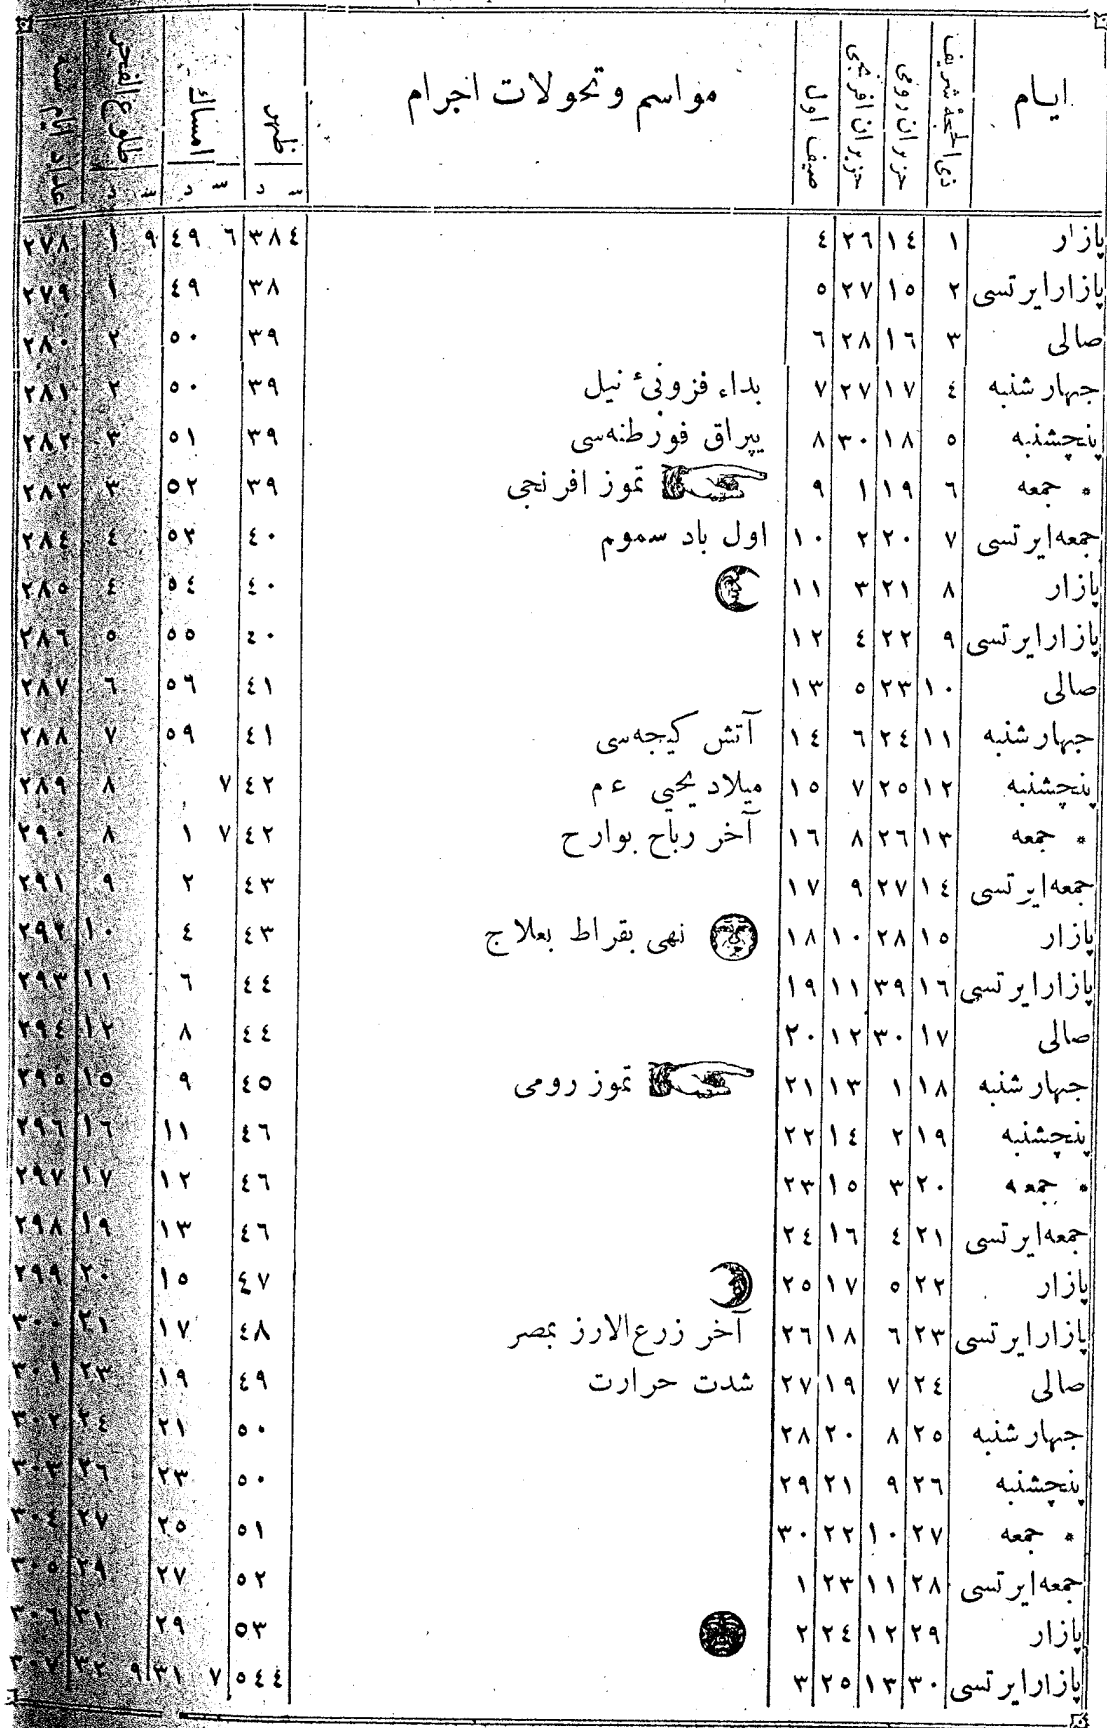 ايام ذى الحجهٔ شريف حزيران رومى حزيران افرنجى صيف اول مواسم و تحولات اجرام ظهر امساك طلوع الفجر عداد ايام سنه
س د س د س د
پازار ١ ١٤ ٢٦ ٤ ٤ ٣٨ ٦ ٤٩ ٩ ١ ٢٧٨
پازارايرتسى ٢ ١٥ ٢٧ ٥ ٣٨ ٤٩ ١ ٢٧٩
صالى ٣ ١٦ ٢٨ ٦ ٣٩ ٥٠ ٢ ٢٨٠
جهارشنبه ٤ ١٧ ٢٧ ٧ بداء فزونىٔ نيل ٣٩ ٥٠ ٢ ٢٨١
پنچشنبه ٥ ١٨ ٣٠ ٨ يپراق فورطنه‌سى ٣٩ ٥١ ٣ ٢٨٢
* جمعه ٦ ١٩ ١ ٩ تموز افرنجى ٣٩ ٥٢ ٣ ٢٨٣
جمعه‌ايرتسى ٧ ٢٠ ٢ ١٠ اول باد سموم ٤٠ ٥٣ ٤ ٢٨٤
پازار ٨ ٢١ ٣ ١١ ٤٠ ٥٤ ٤ ٢٨٥
پازارايرتسى ٩ ٢٢ ٤ ١٢ ٤٠ ٥٥ ٥ ٢٨٦
صالى ١٠ ٢٣ ٥ ١٣ ٤١ ٥٦ ٦ ٢٨٧
جهارشنبه ١١ ٢٤ ٦ ١٤ آتش كيجه‌سى ٤١ ٥٩ ٧ ٢٨٨
پنچشنبه ١٢ ٢٥ ٧ ١٥ ميلاد يحيى ع م ٤٢ ٧ ٨ ٢٨٩
* جمعه ١٣ ٢٦ ٨ ١٦ آخر رياح بوارح ٤٢ ٧ ١ ٨ ٢٩٠
جمعه‌ايرتسى ١٤ ٢٧ ٩ ١٧ ٤٣ ٢ ٩ ٢٩١
پازار ١٥ ٢٨ ١٠ ١٨ نهى بقراط بعلاج ٤٣ ٤ ١٠ ٢٩٢
پازارايرتسى ١٦ ٣٩ ١١ ١٩ ٤٤ ٦ ١١ ٢٩٣
صالى ١٧ ٣٠ ١٢ ٢٠ ٤٤ ٨ ١٢ ٢٩٤
جهارشنبه ١٨ ١ ١٣ ٢١ تموز رومى ٤٥ ٩ ١٥ ٢٩٥
پنچشنبه ١٩ ٢ ١٤ ٢٢ ٤٦ ١١ ١٦ ٢٩٦
* جمعه ٢٠ ٣ ١٥ ٢٣ ٤٦ ١٢ ١٧ ٢٩٧
جمعه‌ايرتسى ٢١ ٤ ١٦ ٢٤ ٤٦ ١٣ ١٩ ٢٩٨
پازار ٢٢ ٥ ١٧ ٢٥ ٤٧ ١٥ ٢٠ ٢٩٩
پازارايرتسى ٢٣ ٦ ١٨ ٢٦ آخر زرع‌الارز بمصر ٤٨ ١٧ ٢١ ٣٠٠
صالى ٢٤ ٧ ١٩ ٢٧ شدت حرارت ٤٩ ١٩ ٢٣ ٣٠١
جهارشنبه ٢٥ ٨ ٢٠ ٢٨ ٥٠ ٢١ ٢٤ ٣٠٢
پنچشنبه ٢٦ ٩ ٢١ ٢٩ ٥٠ ٢٣ ٢٦ ٣٠٣
* جمعه ٢٧ ١٠ ٢٢ ٣٠ ٥١ ٢٥ ٢٧ ٣٠٤
جمعه‌ايرتسى ٢٨ ١١ ٢٣ ١ ٥٢ ٢٧ ٢٩ ٣٠٥
پازار ٢٩ ١٢ ٢٤ ٢ ٥٣ ٢٩ ٣١ ٣٠٦
پازارايرتسى ٣٠ ١٣ ٢٥ ٣ ٤ ٥٤ ٧ ٣١ ٩ ٣٢ ٣٠٧